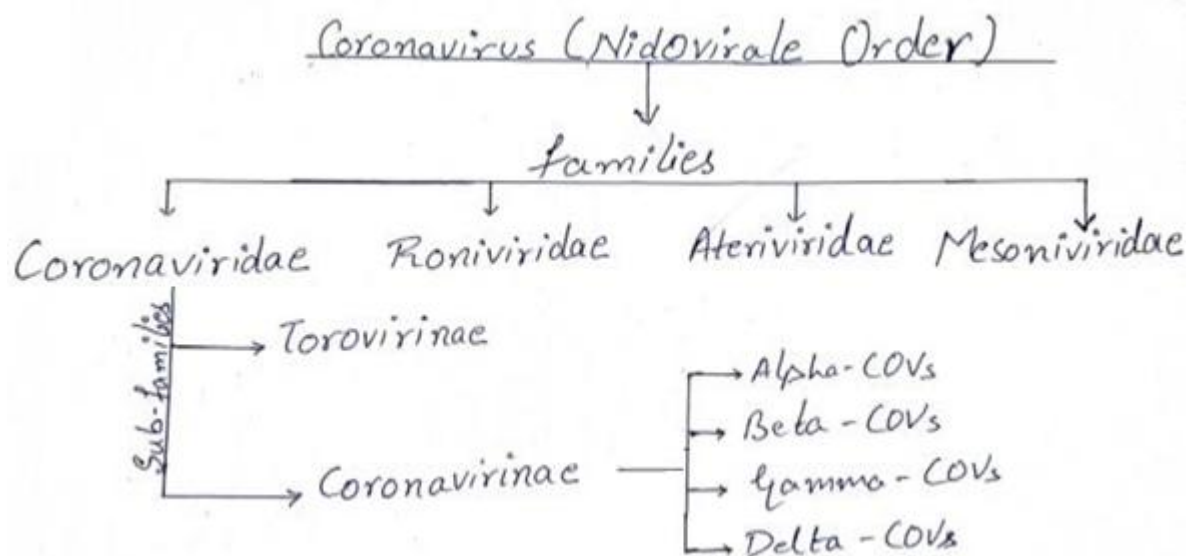 Coronavirus (Nidovirale Order)
families
Coronaviridae Roniviridae Ateriviridae Mesoniviridae
Sub-families
Torovirinae
Coronavirinae
Alpha-COVs
Beta-COVs
Gamma-COVs
Delta-COVs